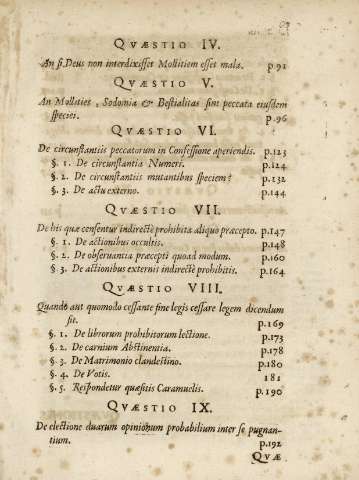 QVÆSTIO IV.
An si Deus non interdixisset Mollitiem esset mala. p.91
QVÆSTIO V.
An Mollities, Sodomia & Bestialitas sint peccata eiusdem
speciei. p.96
QVÆSTIO VI.
De circumstantiis peccatorum in Confessione aperiendis. p.123
§. 1. De circumstantia Numeri. p.124
§. 2. De circumstantiis mutantibus speciem? p.132
§. 3. De actu externo. p.144
QVÆSTIO VII.
De his quæ censentur indirectè prohibita aliquo præcepto. p.147
§. 1. De actionibus occultis. p.148
§. 2. De observantia præcepti quoad modum. p.160
§ 3. De actionibus externis indirectè prohibitis. p.164
QVÆSTIO VIII.
Quando aut quomodo cessante fine legis cessare legem dicendum
sit. p.169
§. 1. De librorum prohibitorum lectione. p.173
§. 2. De carnium Abstinentia. p.178
§. 3. De Matrimonio clandestino. p.180
§. 4. De Votis. 181
§. 5. Respondetur quæsitis Caramuelis. p.190
QVÆSTIO IX.
De electione duarum opinionum probabilium inter se pugnan-
tium. p.192
QVÆ-